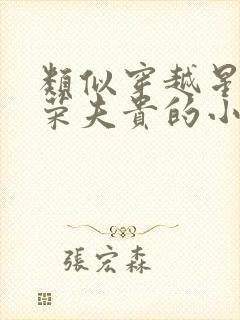 類似穿越星
荣夫貴的小
張宏森